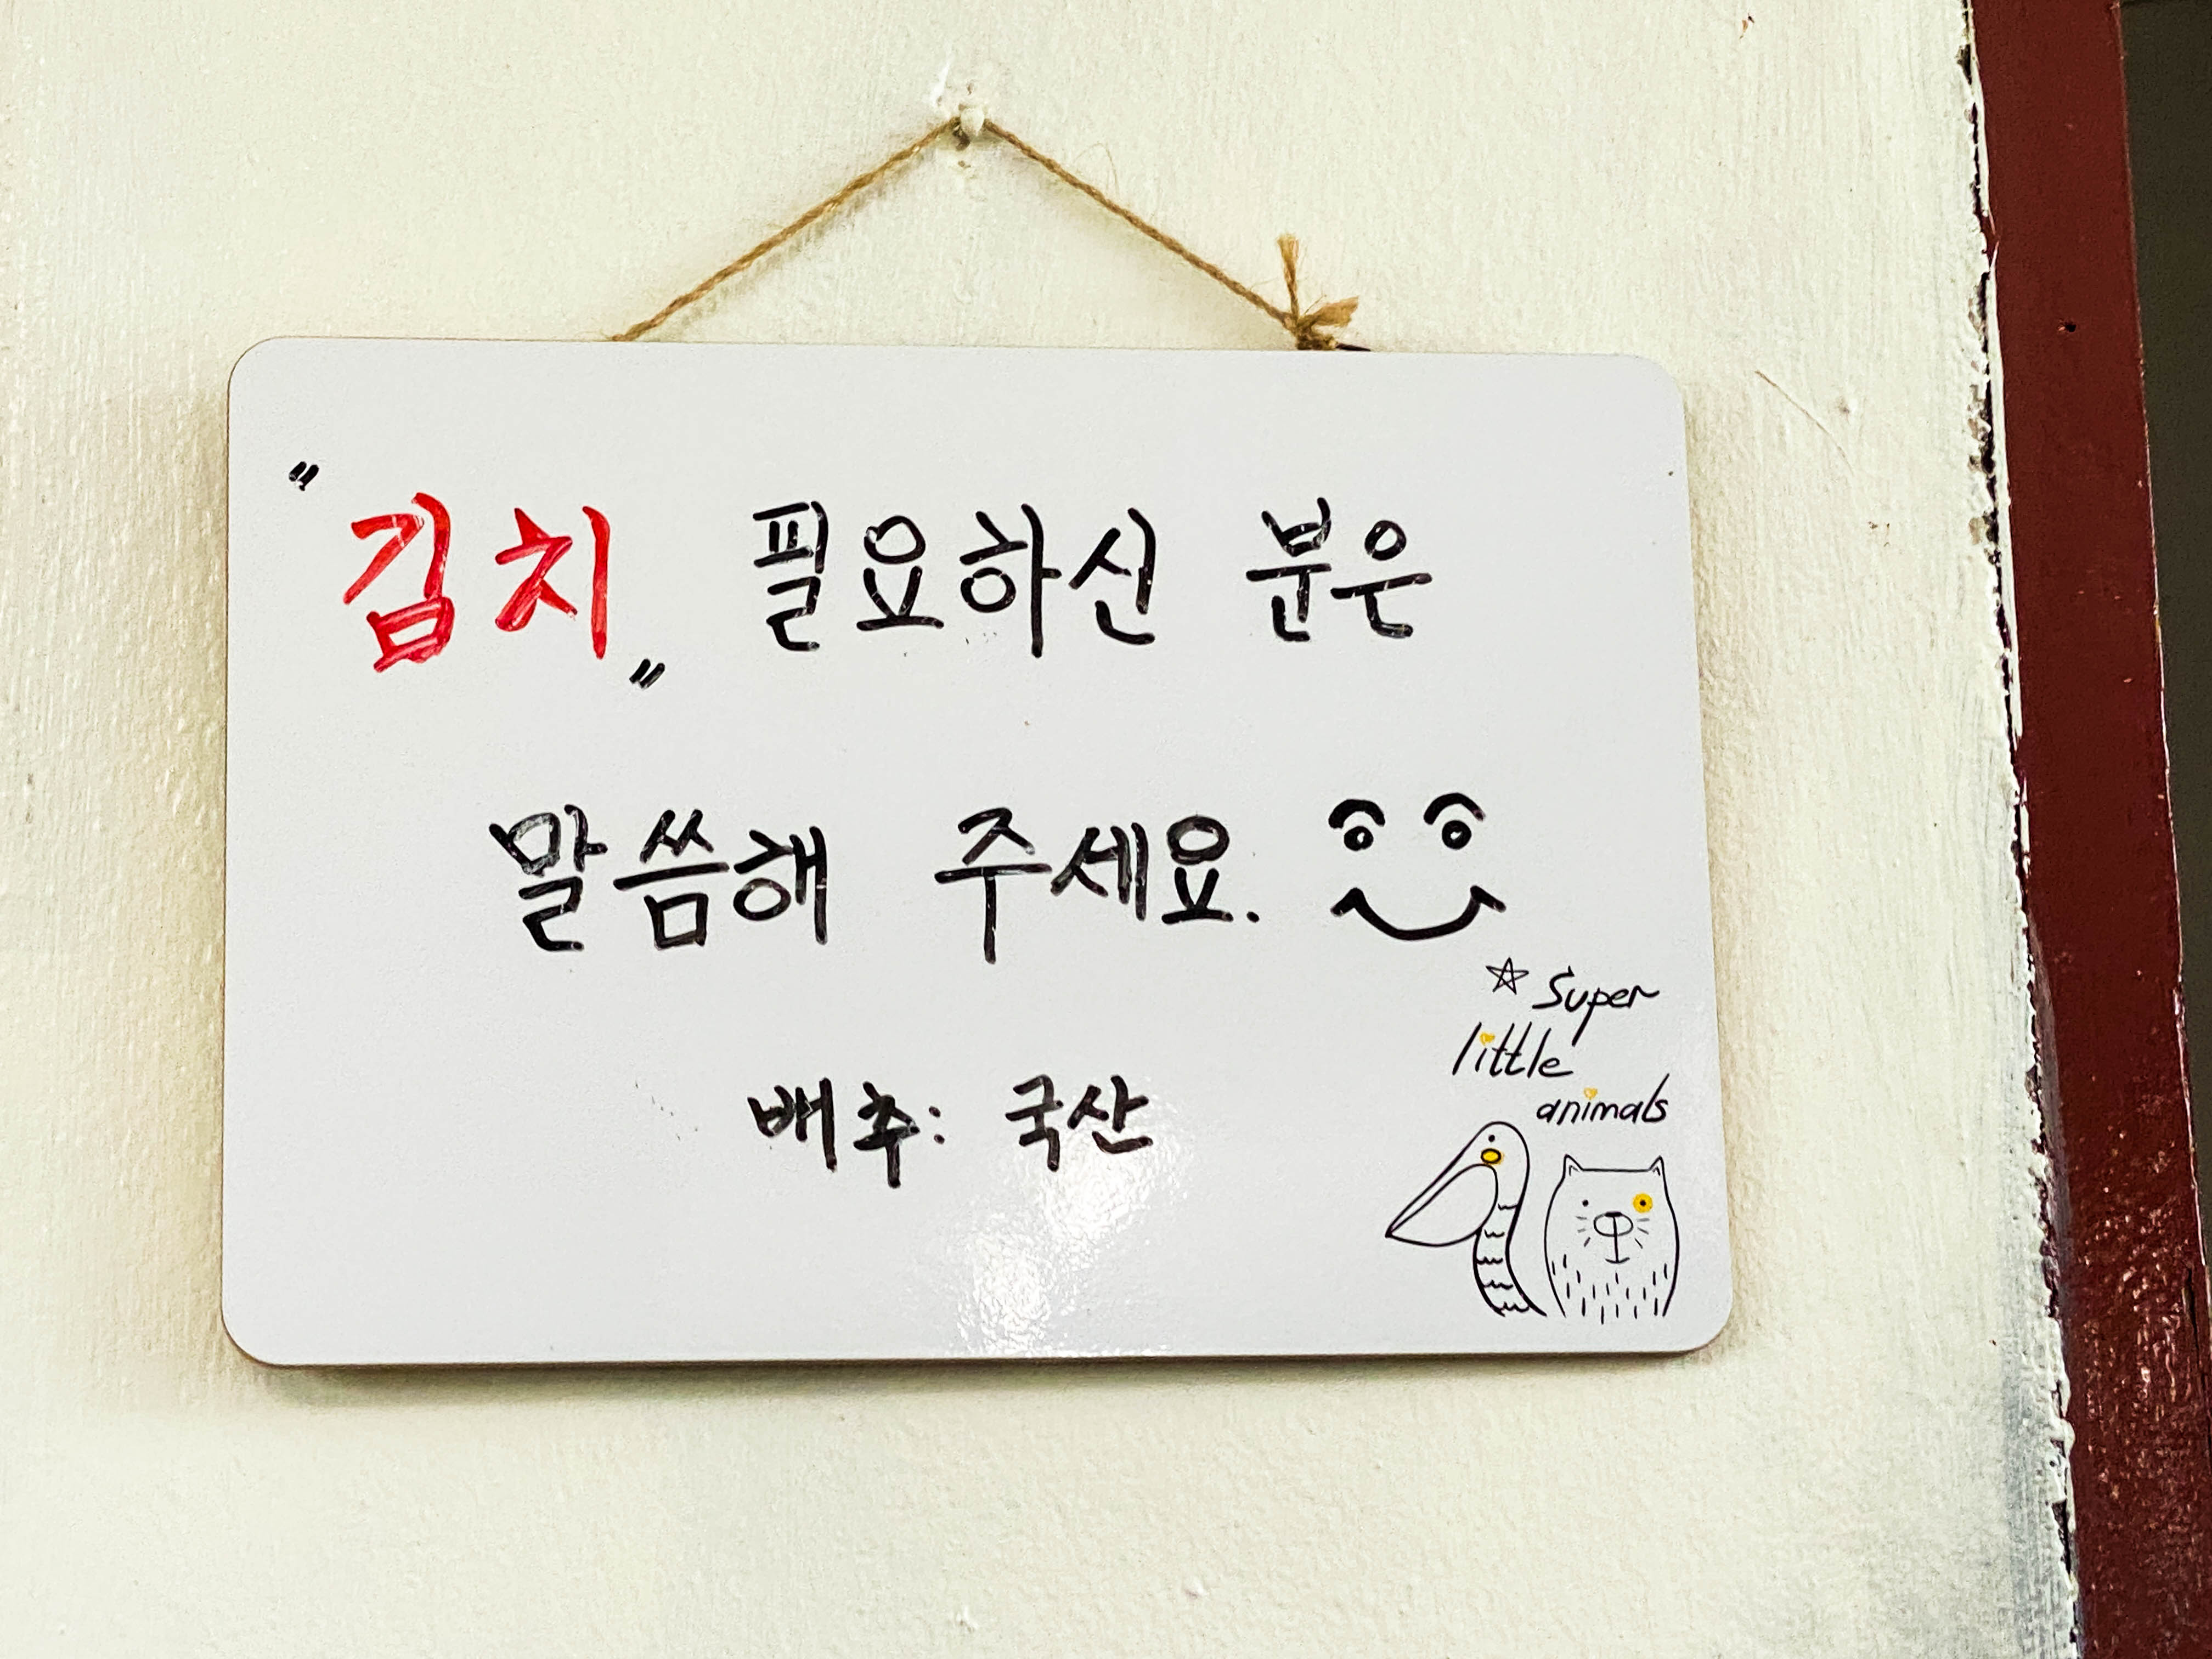 "김치" 필요하신 분은
말씀해 주세요.
Super
little
animals
배추: 국산